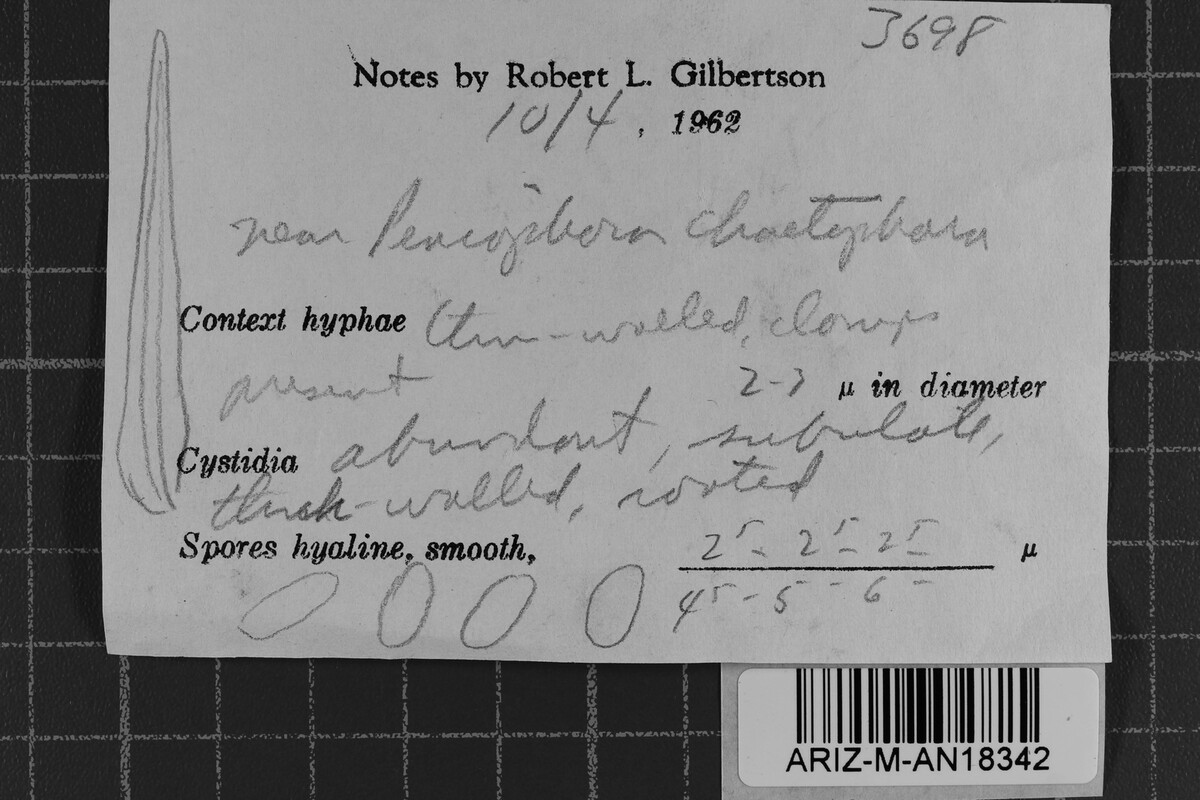 3698
Notes by Robert L. Gilbertson
10/4, 1962
near Peniophora chaetophora
Context hyphae thin-walled, clamps
present 2-3 µ in diameter
Cystidia abundant, subulate,
thick-walled, rooted
Spores hyaline, smooth, 2⁵- 2⁵- 2⁵ µ
4⁵- 5 - 6 -
ARIZ-M-AN18342